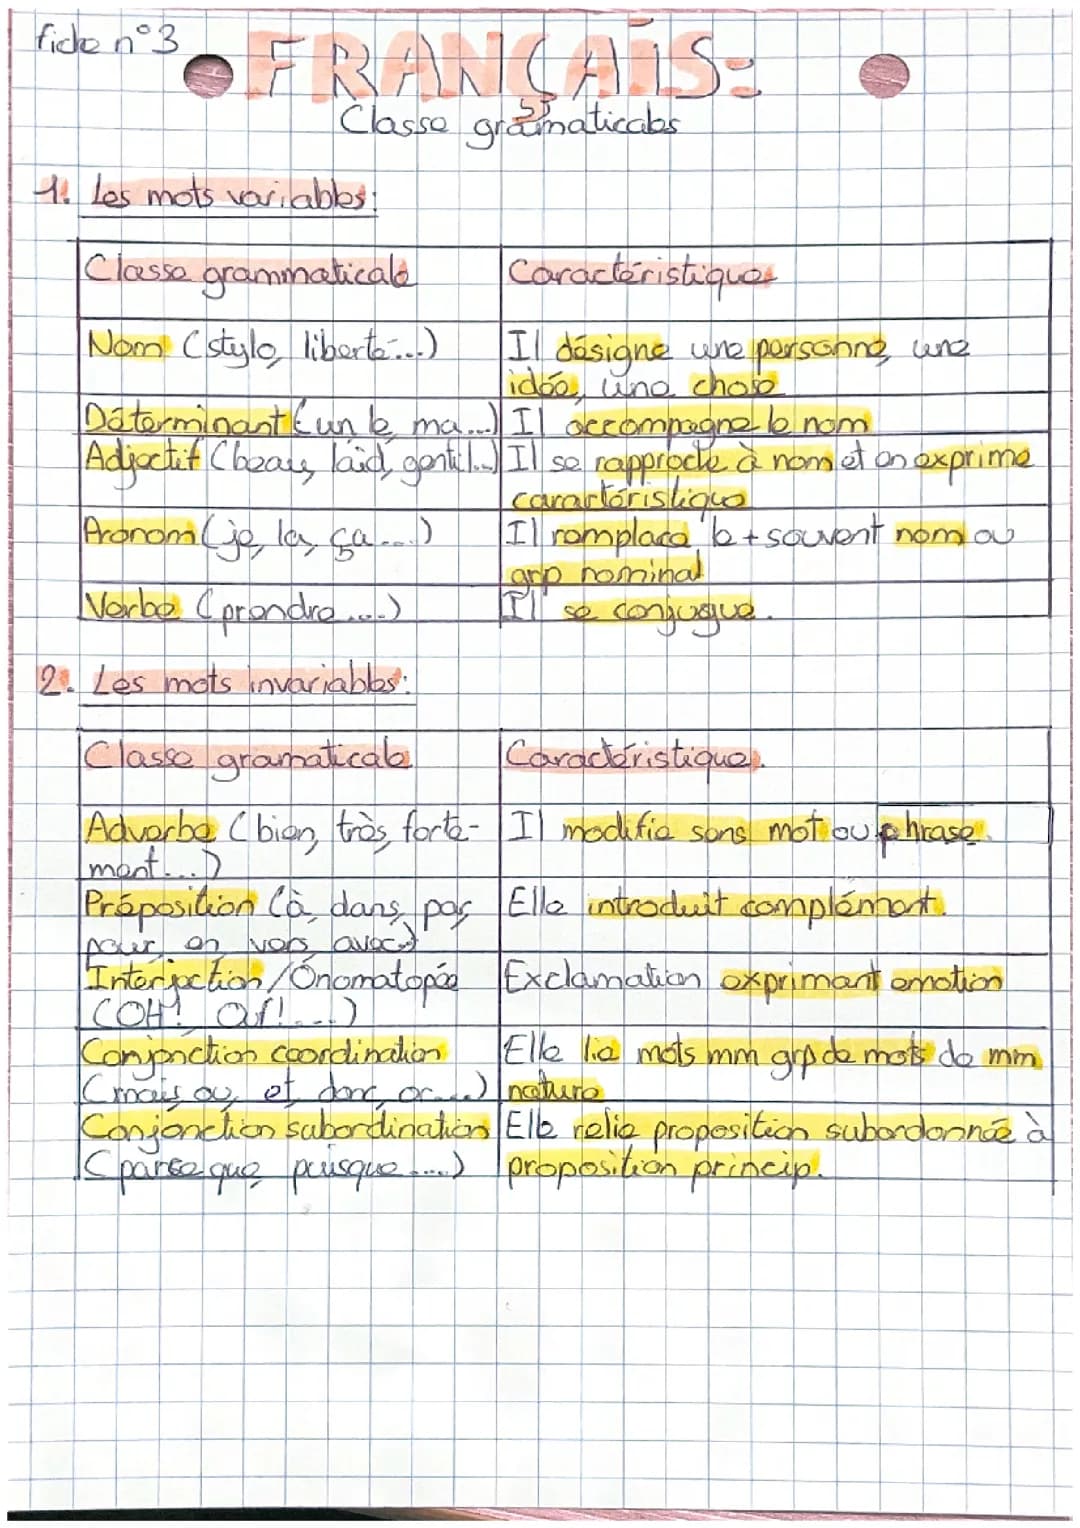 fiche n°3
FRANÇAIS:
Classe gramaticales
1. Les mots variables:
Classe grammaticale
Caractéristiques
Nom (stylo, liberté...)
Il désigne une personne, une
idée, une chose
Déterminant (un le, ma...)
Il accompagne le nom
Adjectif (beau, laid, gentil...)
Il se rapproche à nom et en exprime
caractéristique
Pronom (je, la, ça...)
Il remplace le + souvent nom ou
grp nominal
Verbe (prendre...)
Il se conjugue.
2. Les mots invariables:
Classe gramaticale
Caractéristiques.
Adverbe (bien, très, forte-
ment...)
Il modifie sens mot ou phrase.
Préposition (à, dans, par
pour, en, vers, avec)
Elle introduit complément.
Interjection/Onomatopée
(OH! Ouf!...)
Exclamation exprimant emotion
Conjonction coordination
(mais, ou, et, donc, or...)
Elle lie mots mm grp de mots de mm
nature
Conjonction subordination
(parce que, puisque....)
Elle relie proposition subordonnée à
proposition princip.